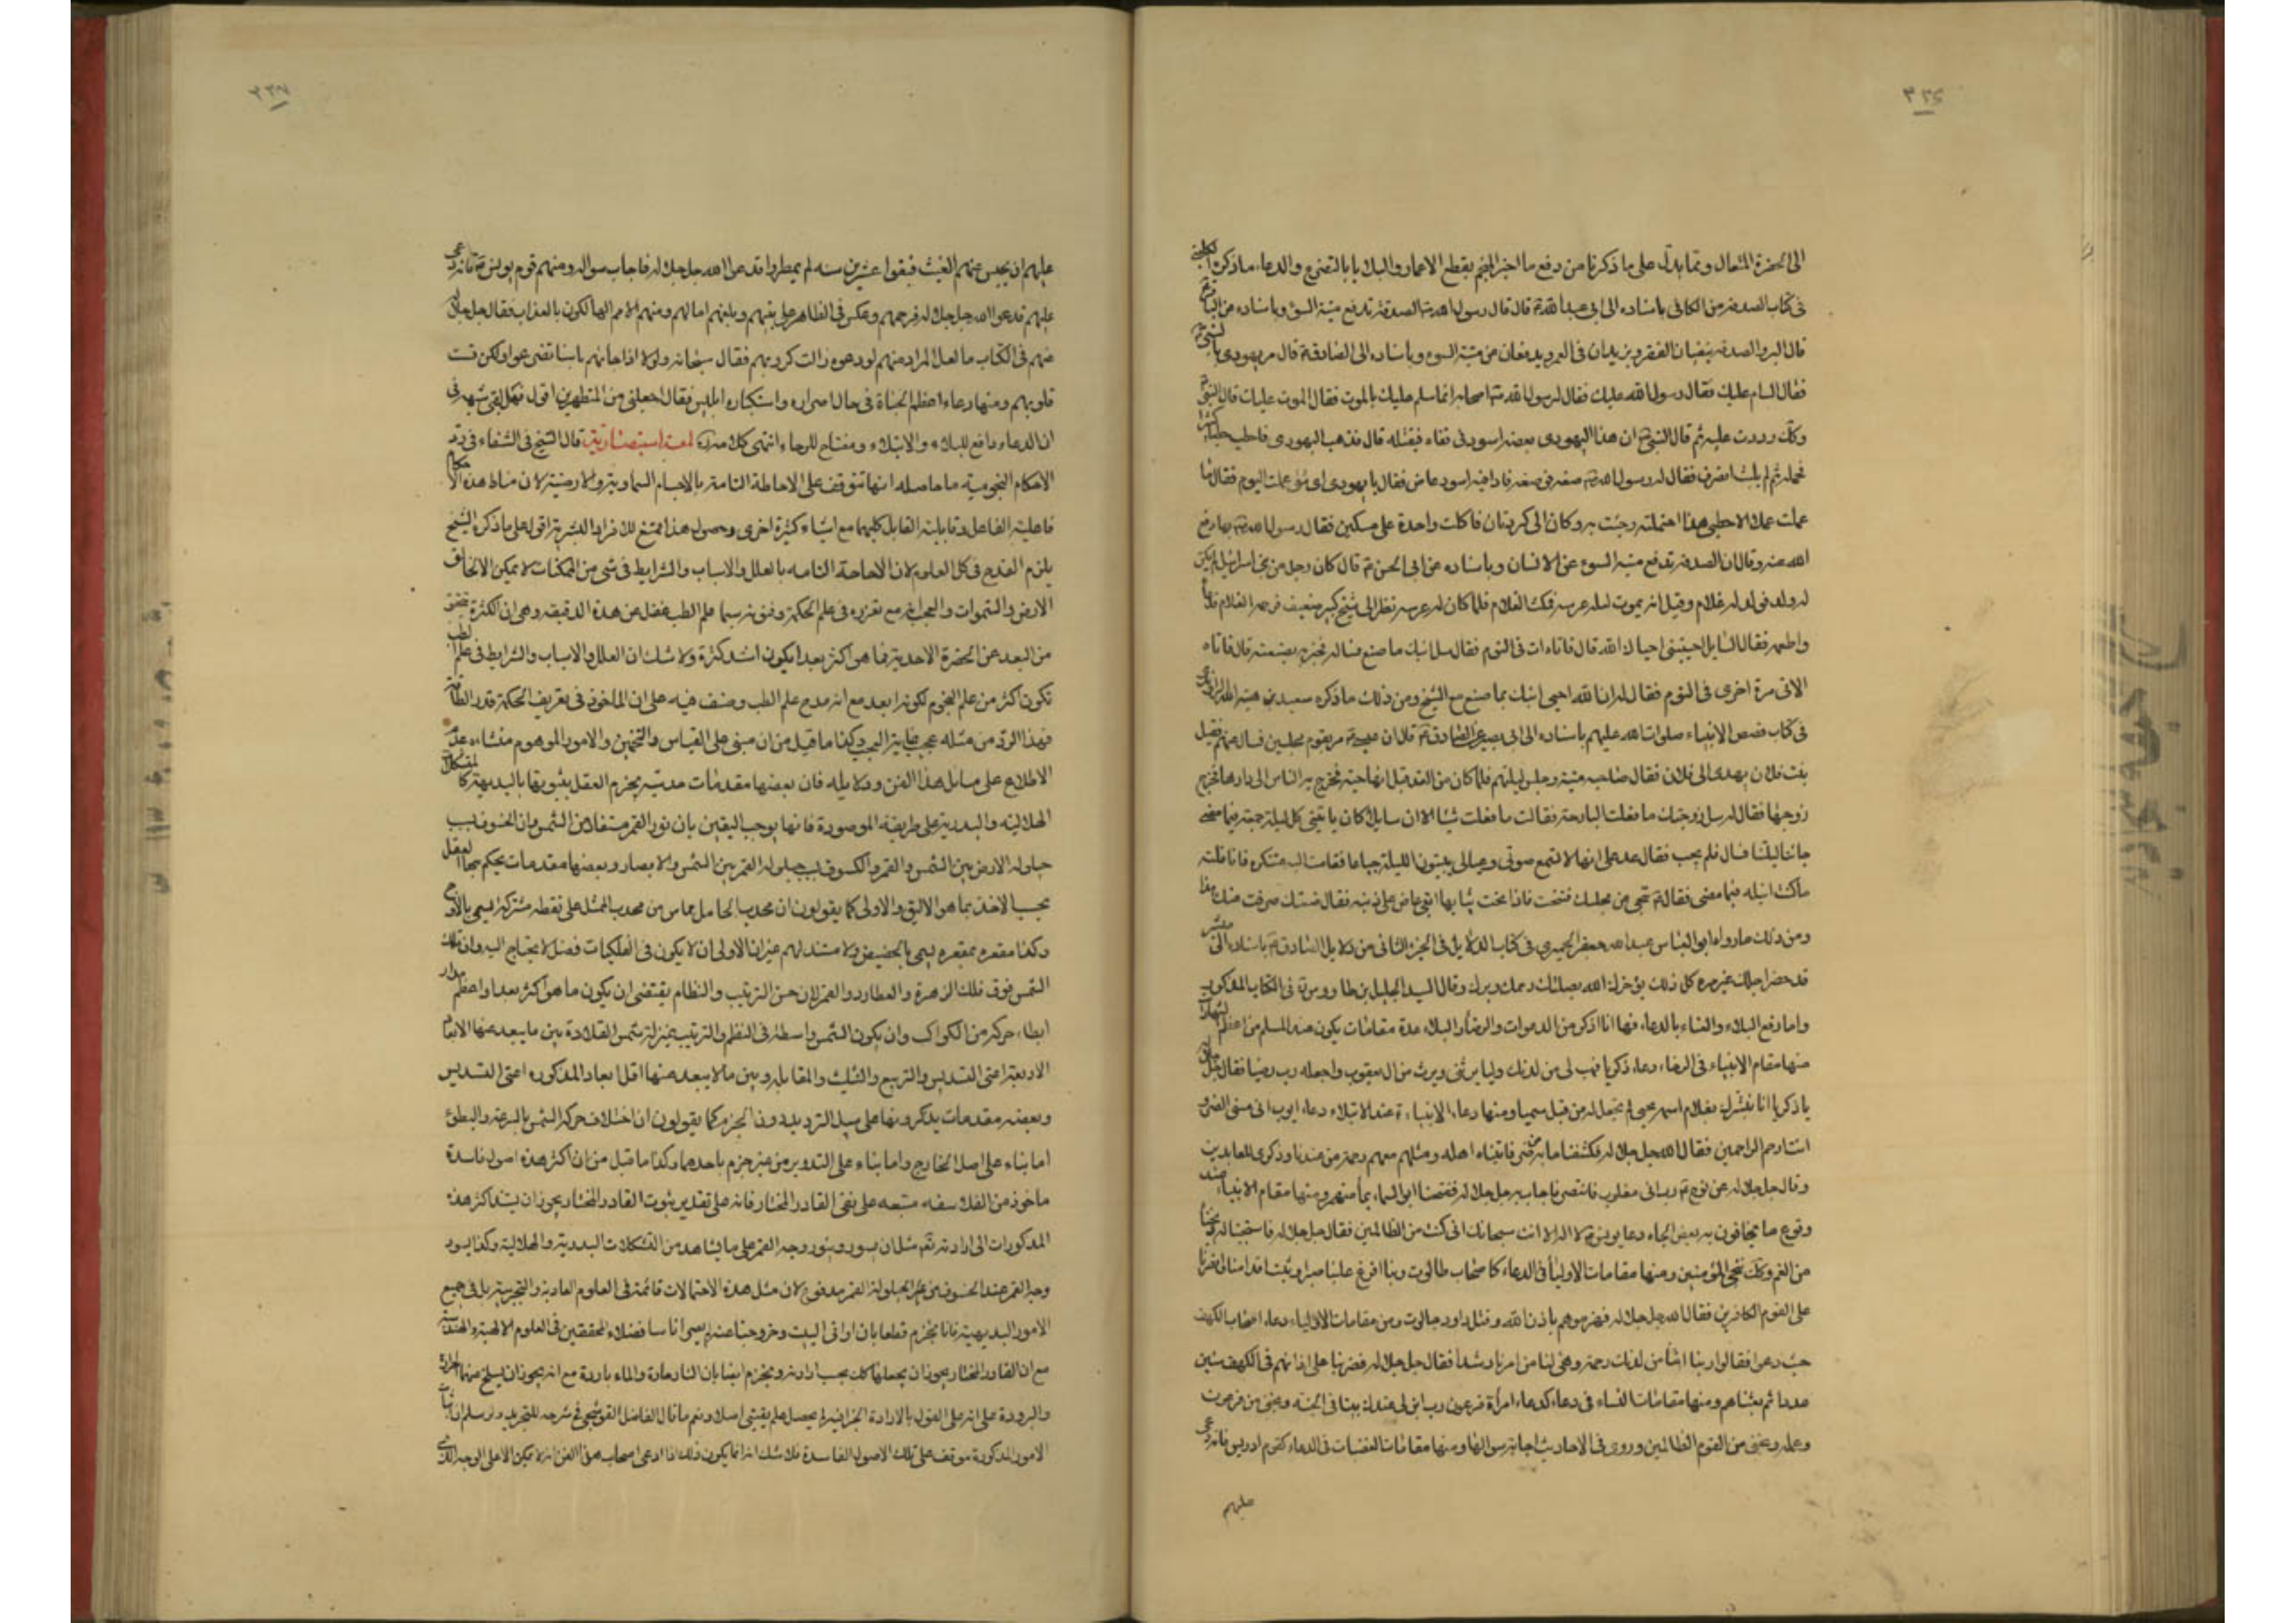 ٣٣٦
الى الحضرة المتعال ومما يدل على ما ذكرنا من دفع ما اخبر المنجم بقطع الاعمار والبلايا بالتضرع والدعاء ما ذكره الكلينى
فى كتاب الصدقة من الكافى باسناده الى ابى عبد الله ع قال قال رسول الله ص الصدقة تدفع ميتة السوء وباسناده عن الباقر ع
قال البر والصدقة ينفيان الفقر ويزيدان فى العمر ويدفعان عن ميتة السوء وباسناده الى الصادق ع قال مر يهودى بالنبى ص
فقال السام عليك فقال رسول الله عليك فقال لرسول الله ص اصحابه انما سلم عليك بالموت فقال الموت عليك قال النبى ص
وكذلك رددت عليه ثم قال النبى ص ان هذا اليهودى يعضه اسود فى قفاه فيقتله قال فذهب اليهودى فاحتطب حطبا كثيرا
فحمله ثم لم يلبث ان انصرف فقال له رسول الله ص ضعه فوضعه فاذا فيه اسود عاض فقال يا يهودى اى شئ عملت اليوم فقال ما
عملت عملا الا حطبى هذا احتملته وجئت به وكان الى كربتان فاكلت واحدة على مسكين فقال رسول الله ص بها دفع
الله عنه وقال ان الصدقة تدفع ميتة السوء عن الانسان وباسناده عن ابى الحسن ع قال كان رجل من بنى اسرائيل لم يكن
له ولد فولد له غلام وقيل انه يموت ليلة عرسه فمكث الغلام فلما كان له عرسه نظر الى شيخ كبير ضعيف فرحمه الغلام فدعاه
واطعمه فقال السايل احييتنى احياك الله قال فاتاه ات فى النوم فقال سل ابنك ما صنع فساله فخبره بصنيعته قال فاتاه
الاتى مرة اخرى فى النوم فقال له ان الله احيى ابنك بما صنع مع الشيخ ومن ذلك ما ذكره سعيد بن هبة الله الراوندى
فى كتاب قصص الانبياء صلوات الله عليهم باسناده الى ابى بصير عن الصادق ع قال ان عيسى ع مر بقوم مجلبين فسال عنهم فقيل
بنت فلان يهدى الى فلان فقال صاحبته ميتة من ليلتهم فلما كان من الغد قيل انها حية فخرج بالناس الى دارها فخرج
زوجها فقال له سل زوجتك ما فعلت البارحة فقالت ما فعلت شيئا الا ان سايلا كان ياتينى كل ليلة جمعة فيما مضى
جاءنا ليلتنا فسال فلم يجب فقال عز على انها لا تسمع صوتى وعيالى يبيتون الليلة جياعا فقمت متنكرة فانا قلته
ما كنت انيله فيما مضى فقال ع تنحى عن مجلسك فتنحت فاذا تحت ثيابها افعى عاض على ذنبه فقال بما تصدقت صرف عنك هذا
ومن ذلك ما رواه ابو العباس عبد الله جعفر الحميرى فى كتاب الدلايل فى الجزء الثانى من دلايل الصادق ع باسناده الى ميسر
قد حضر اجلك غير مرة كل ذلك يؤخرك الله بصلتك رحمك وبرك وقال السيد الجليل بن طاووس ره فى الكتاب المذكور
واما رفع البلاء والشقاء بالدعاء فها انا اذكر من الدعوات والرخاء والبلاء عدة مقامات يكون عند المسلم من اعظم الشهادات
منها مقام الانبياء فى الرخاء دعاء زكريا فهب لى من لدنك وليا يرثنى ويرث من ال يعقوب واجعله رب رضيا فقال جل جلاله
يا زكريا انا نبشرك بغلام اسمه يحيى لم نجعل له من قبل سميا ومنها دعاء الانبياء عند الابتلاء دعاء ايوب انى مسنى الضر و
انت ارحم الراحمين فقال الله جل جلاله فكشفنا ما به من ضر فاتيناه اهله ومثلهم معهم رحمة من عندنا وذكرى للعابدين
وقال جل جلاله عن نوح ع رب انى مغلوب فانتصر فاجاب به جل جلاله ففتحنا ابواب السماء بماء منهمر ومنها مقام الانبياء عند
وقوع ما يخافون به بعض انحاء دعا يونس ع لا اله الا انت سبحانك انى كنت من الظالمين فقال جل جلاله فاستجبنا له ونجيناه
من الغم وكذلك ننجى المؤمنين ومنها مقامات الاولياء فى الدعاء كاصحاب طالوت ربنا افرغ علينا صبرا وثبت اقدامنا وانصرنا
على القوم الكافرين فقال الله جل جلاله فهزموهم باذن الله وقتل داود جالوت ومن مقامات الاولياء دعاء اصحاب الكهف
حيث دعوا فقالوا ربنا اتنا من لدنك رحمة وهيئ لنا من امرنا رشدا فقال جل جلاله فضربنا على اذانهم فى الكهف سنين
عددا ثم بعثناهم ومنها مقامات النساء فى دعاء كدعاء امرأة فرعون رب ابن لى عندك بيتا فى الجنة ونجنى من فرعون
وعمله ونجنى من القوم الظالمين وروى فى الاحاديث اجابة سوالها ومنها مقامات العصاة فى الدعاء كقوم ادريس فانه دعى
عليهم
٣٣٧
عليهم ان يحبس عنهم الغيث فبقوا عشرين سنه لم يمطروا فدعوا الله جل جلاله فاجاب سوالهم ومنهم قوم يونس ع فانه دعى
عليهم فدعوا الله جل جلاله فرحمهم وعكس فى الظاهر على نبيهم وبلغهم امالهم ومنهم الامم الهالكون بالعذاب فقال جل جلاله
عنهم فى الكتاب ما لعل المراد منهم لو دعوه زالت كروبهم فقال سبحانه ولولا اذ جائهم باسنا تضرعوا ولكن قست
قلوبهم ومنها دعاء اعظم الجناة فى حال اصراره واستكباره ابليس فقال اجعلنى من المنظرين اقول فهل بقى شبهة فى
ان الدعاء دافع للبلاء والابتلاء ومفتاح للرجاء انتهى كلامه لمعة استبصارية قال الشيخ فى الشفاء فى رد
الاحكام النجومية ما حاصله انها تتوقف على الاحاطة التامة بالاجسام السماوية والارضية لان مناط هذه الاحكام
فاعلية الفاعل وقابلية القابل كليهما مع اشياء كثيرة اخرى وحصول هذا ممتنع للافراد البشرية اقول على ما ذكره الشيخ
يلزم القدح فى كل العلوم لان الاحاطة التامه بالعلل والاسباب والشرايط فى شى من الممكنات لا يمكن الا لخالق
الارض والسموات والعجب انه مع تفرده فى علم الحكمة وفنونه سيما علم الطب غفل عن هذه الدقيقه وهى ان الكثرة تحقق
من البعد عن الحضرة الاحدية فما هو اكثر بعدا يكون اشد كثرة ولا شك ان العلل والاسباب والشرايط فى علم الطب
تكون اكثر من علم النجوم لكونه ابعد مع انه مدح علم الطب وصنف فيه على ان الماخوذ فى تعريف الحكمة قدر الطاقة
فهذا الرد من مثله عجيب غاية العجب وكذا ما قيل من ان مبنى على القياس والتخمين والامور الموهوم منشاءه عدم
الاطلاع على مسائل هذا الفن ودلايله فان بعضها مقدمات حدسية يجزم العقل بثبوتها بالبديهة كالتشكلات
الهلالية والبدرية على طريقة المرصودة فانها يوجب اليقين بان نور القمر مستفاد من الشمس وان الخسوف بسبب
حيلولة الارض بين الشمس والقمر والكسوف بسبب حيلولة القمر بين الشمس والابصار وبعضها مقدمات يحكم بها العقل
بحسب الاخذ بما هو الاليق والاولى كما يقولون ان محدب الحامل مماس من محدب الممثل على نقطة مشتركة يسمى بالاوج
وكذا مقعره بمقعره يسمى بالحضيض ولا مستند لهم غير ان الاولى ان لا يكون فى الفلكيات فصل لا يحتاج اليه وان فلك
الشمس فوق فلك الزهرة والعطارد والقمر لان حسن الترتيب والنظام يقتضى ان يكون ما هو اكثر بعدا واعظم مدار
ابطاء حركة من الكواكب وان يكون الشمس واسطة فى النظم والترتيب بمنزلة شمس القلادة بين ما يبعد عنها الابعاد
الاربعة اعنى التسديس والتربيع والتثليث والمقابلة وبين ما لا يبعد عنها اقل ابعاد المذكوره اعنى التسديس
وبعضه مقدمات يذكرونها على سبيل الترديد دون الجزم كما يقولون ان اختلاف حركة الشمس بالسرعة والبطؤ
اما بناء على اصل الخارج واما بناء على التدوير من غير جزم باحدهما وكذا ما قيل من ان اكثر هذه اصول فاسدة
ماخوذ من الفلاسفه مبتنيه على نفى القادر المختار فانه على تقدير ثبوت القادر المختار يجوز ان يستند اكثر هذه
المذكورات الى ارادته تعالى مثل ان يسود وينور وجه القمر على ما يشاهد من التشكلات البدرية والهلالية وكذا يسود
وجه القمر عند الخسوف من غير الحيلولة القمر مدفوع لان مثل هذه الاحتمالات قائمة فى العلوم العادية والتجربية بل فى جميع
الامور البديهية فانا نجزم قطعا بان اوانى البيت وخروجنا عنه لم يصر اناسا فضلاء محققين فى العلوم الالهية والهندسة
مع ان القادر المختار يجوز ان يجعلها كذلك بحسب ارادته ونجزم ايضا بان النار حارة والماء باردة مع انه يجوز ان يسلخ منهما الحرارة
والبرودة على انه على القول بالارادة الجزافية لم يحصل علم يقينى اصلا ونعم ما قال الفاضل القوشجى فى شرحه للتجريد ولو سلم ان اثبات
الامور المذكورة موقوف على تلك الاصول الفاسدة فلا شك انه انما يكون ذلك اذا ادعى اصحاب هذا الفن انه لا يمكن الا على الوجه الذى